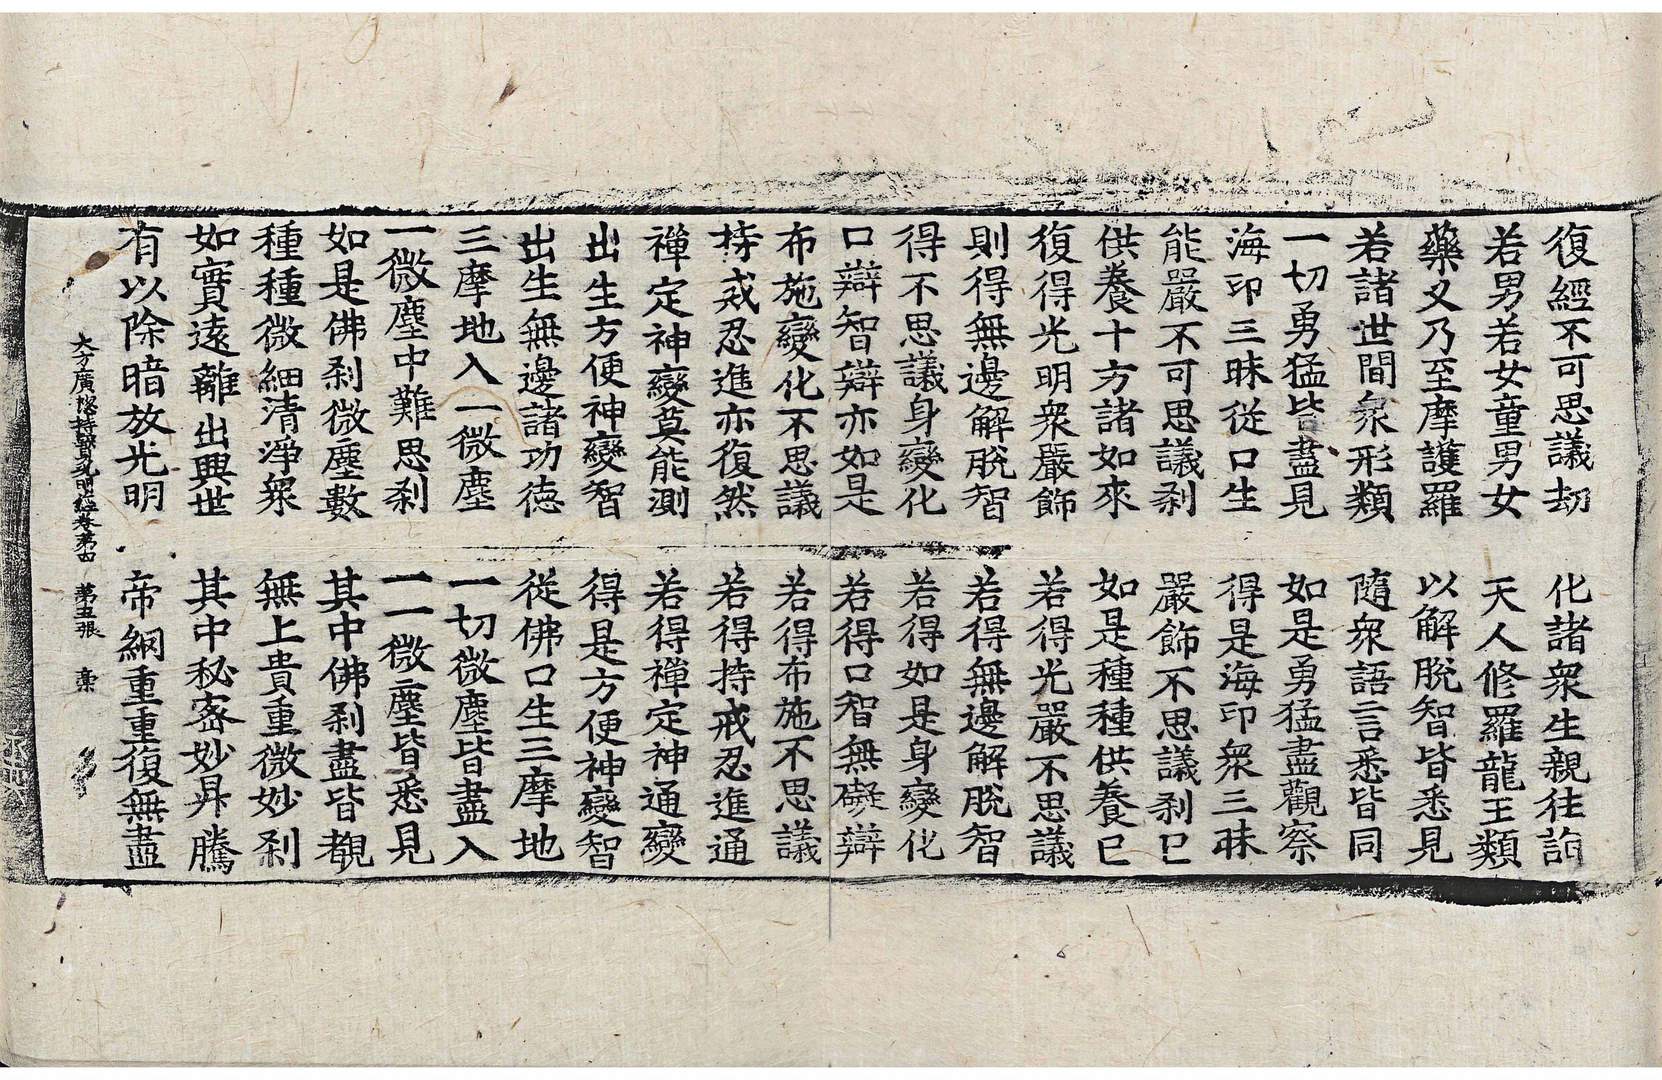 復經不可思議劫　化諸衆生親往詣
若男若女童男女　天人修羅龍王類
藥叉乃至摩護羅　以解脫智皆悉見
若諸世間衆形類　隨衆語言悉皆同
一切勇猛皆盡見　如是勇猛盡觀察
海印三昧從口生　得是海印衆三昧
能嚴不可思議刹　嚴飾不思議刹已
供養十方諸如來　如是種種供養已
復得光明衆嚴飾　若得光嚴不思議
則得無邊解脫智　若得無邊解脫智
得不思議身變化　若得如是身變化
口辯智辯亦如是　若得口智無礙辯
布施變化不思議　若得布施不思議
持戒忍進亦復然　若得持戒忍進通
禪定神變莫能測　若得禪定神通變
出生方便神變智　得是方便神變智
出生無邊諸功德　從佛口生三摩地
三摩地入一微塵　一切微塵皆盡入
一微塵中難思刹　一一微塵皆悉見
如是佛刹微塵數　其中佛刹盡皆覩
種種微細清淨衆　無上貴重微妙刹
如實遠離出興世　其中秘密妙昇騰
有以除暗放光明　帝網重重復無盡
大方廣揔持寶光明經卷第四　第五張